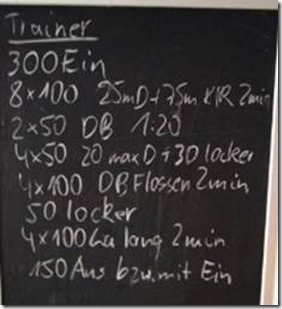 Trainer
300 Ein
8x100 25mD+75m K/R 2min
2x50 DB 1:20
4x50 20 max D + 30 locker
4x100 DB Flossen 2min
50 locker
4x100 Ga lang 2min
150 Aus bzw. mit Ein